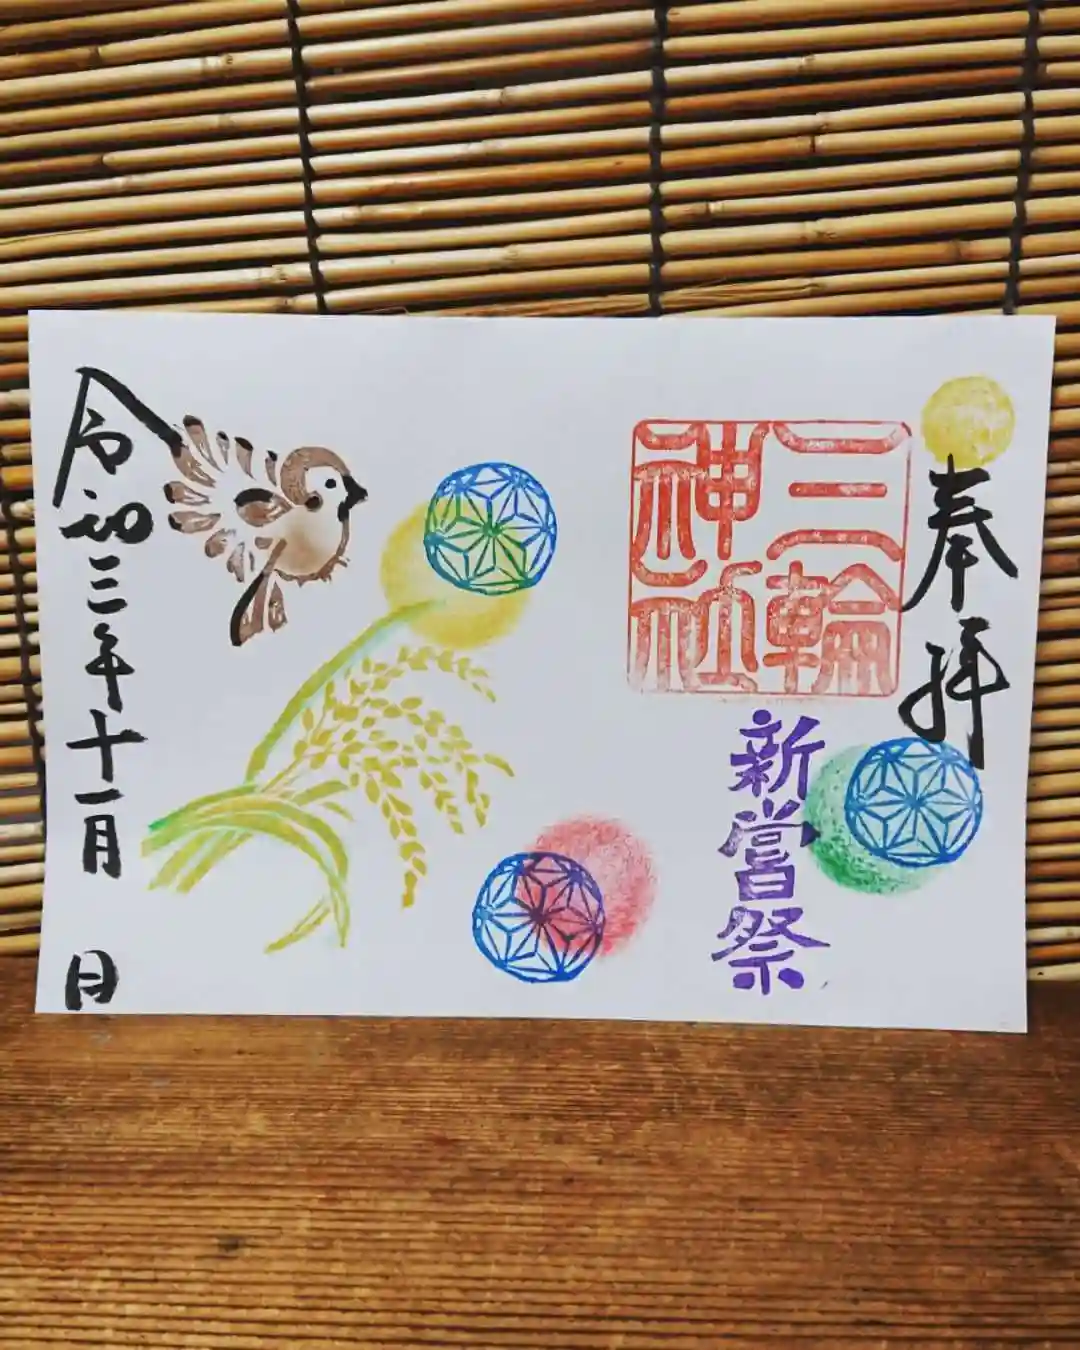 奉拝
三輪
神社
新嘗祭
令和三年十一月 日